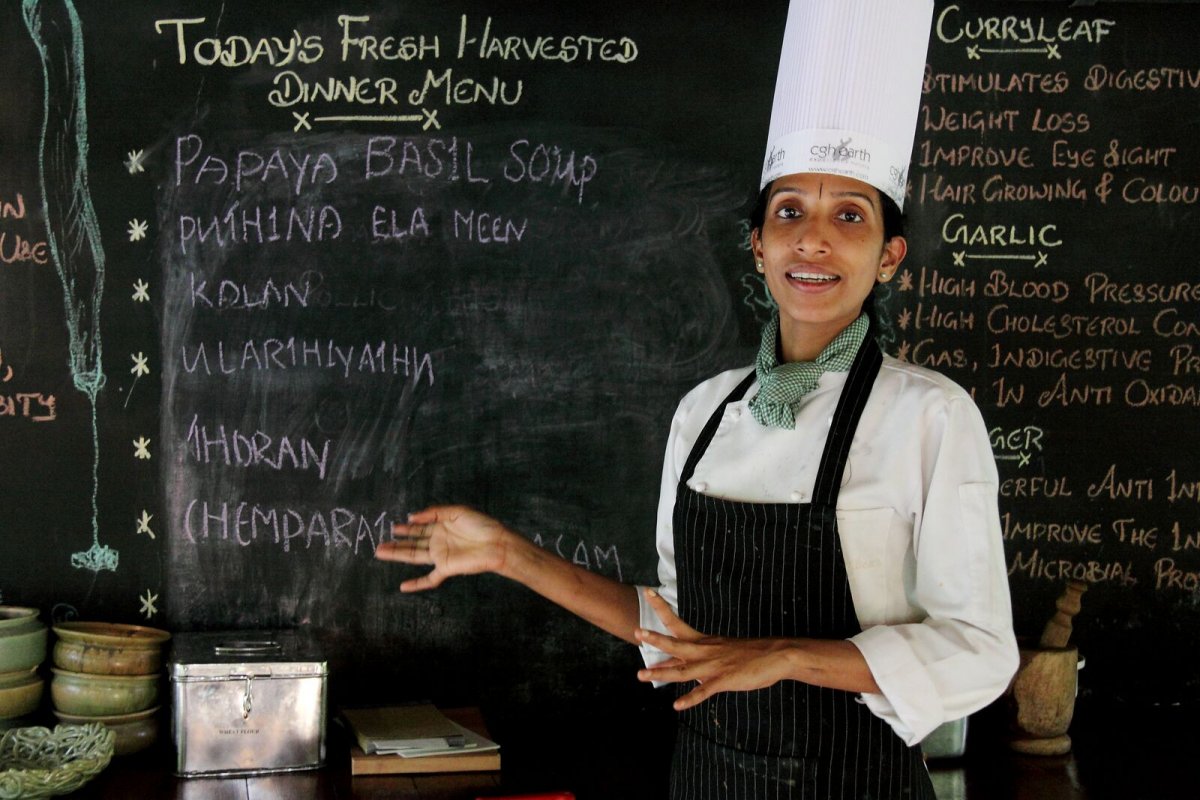 IN
USE
BITY
TODAY'S FRESH HARVESTED
DINNER MENU
PAPAYA BASIL SOUP
PUTHINA ELA MEEN
KOLAN
ULARTHIYATHU
THORAN
CHEMPARAT
ASAM
cgh earth
www.cghearth.com
WHEAT FLOUR
CURRYLEAF
STIMULATES DIGESTIV
WEIGHT LOSS
IMPROVE EYE SIGHT
HAIR GROWING & COLOU
GARLIC
HIGH BLOOD PRESSURE
HIGH CHOLESTEROL CON
GAS, INDIGESTIVE PR
IN ANTI OXIDA
GER
ERFUL ANTI IN
IMPROVE THE IN
MICROBIAL PRO